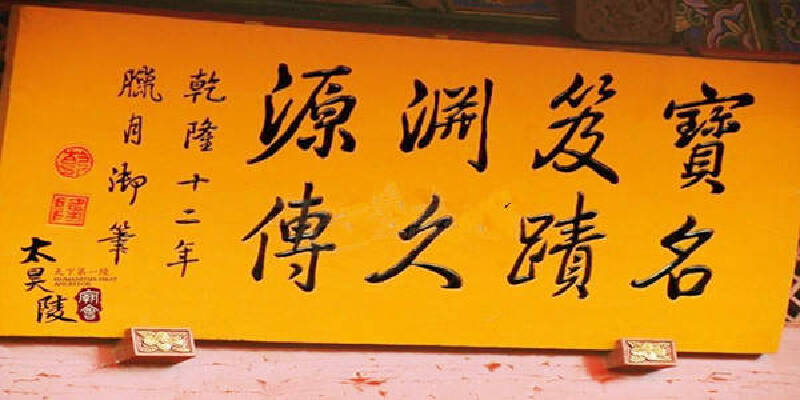 寶笈淵源
名蹟久傳
乾隆十二年
臘月御筆
乾
隆
太昊陵
天下第一陵
廟會